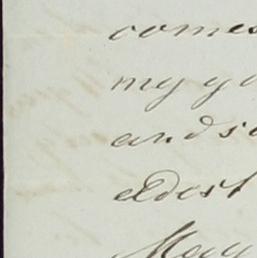 comes
my y
and s
eldest
May